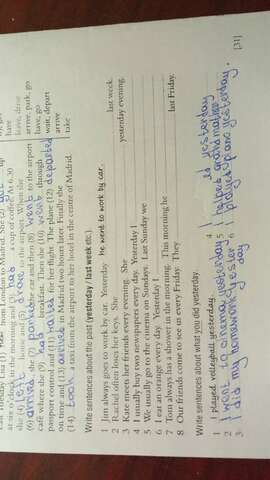 have
leave, drive
arrive, park, go
have, go
wait, depart
arrive
take
at six o'clock in the morning and had a cup of coffee. At 6.30
she (4) left home and (5) drove to the airport. When she
(6) arrived, she (7) parked the car and then (8) went to the airport
café where she (9) had breakfast. Then she (10) went through
passport control and (11) waited for her flight. The plane (12) departed
on time and (13) arrived in Madrid two hours later. Finally she
(14) took a taxi from the airport to her hotel in the centre of Madrid.
Write sentences about the past (yesterday / last week etc.).
1 Jim always goes to work by car. Yesterday He went to work by car.
2 Rachel often loses her keys. She last week.
3 Kate meets her friends every evening. She yesterday evening.
4 I usually buy two newspapers every day. Yesterday I
5 We usually go to the cinema on Sundays. Last Sunday we
6 I eat an orange every day. Yesterday I
7 Tom always has a shower in the morning. This morning he
8 Our friends come to see us every Friday. They last Friday.
Write sentences about what you did yesterday.
1 I played volleyball yesterday.
2 I went yesterday
3 I did my homework yesterday
4 yesterday
5 I helped grandmother
6 I played piano yesterday.
[31]